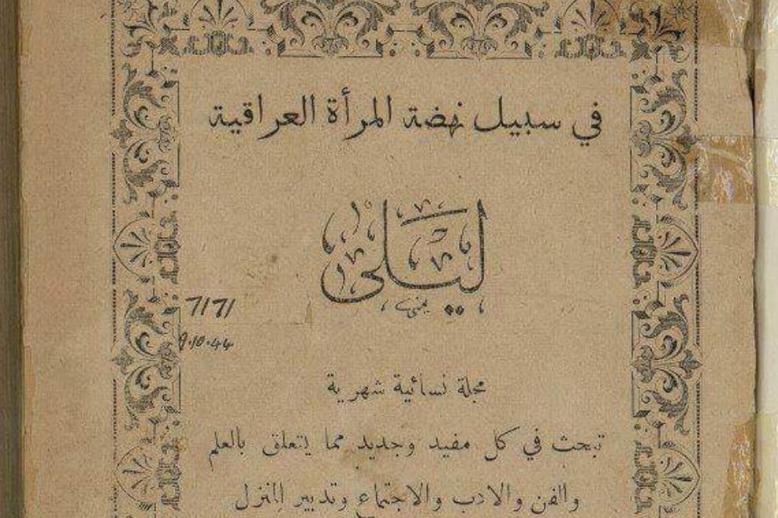 في سبيل نهضة المرأة العراقية
ليلى
يمنى
7171
9.10.44
مجلة نسائية شهرية
تبحث في كل مفيد وجديد مما يتعلق بالعلم
والفن والادب والاجتماع وتدبير المنزل